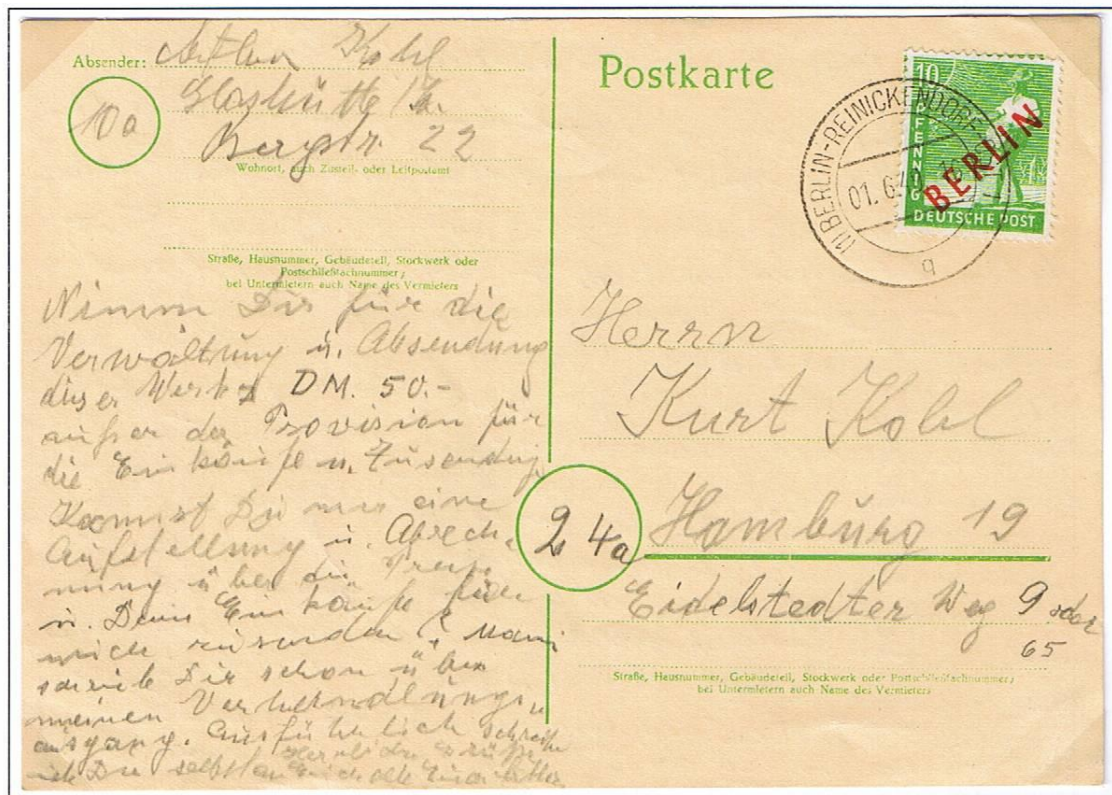 Absender: Arthur Kohl
10a
Glashütte/Sa.
Bergstr. 22
Wohnort, auch Zustell- oder Leitpostamt
Straße, Hausnummer, Gebäudeteil, Stockwerk oder
Postschließfachnummer;
bei Untermietern auch Name des Vermieters
Nimm Dir für die
Verwaltung u. Absendung
dieser Werke DM. 50.-
außer der Provision für
die Einkäufe u. Zusendung
Kannst Du mir eine
Aufstellung u. Abrech-
nung über die
u. Deine Einkäufe für
mich zusenden? Mami
schrieb Dir schon über
meinen Verhandlungs-
ausgang. Ausführlich schreibe
ich Dir selbst
Postkarte
10 PFENNIG
BERLIN
DEUTSCHE POST
(1) BERLIN-REINICKENDORF
01. 6. 49
q
Herrn
Kurt Kohl
24a Hamburg 19
Eidelstedter Weg 9 oder
65
Straße, Hausnummer, Gebäudeteil, Stockwerk oder Postschließfachnummer;
bei Untermietern auch Name des Vermieters